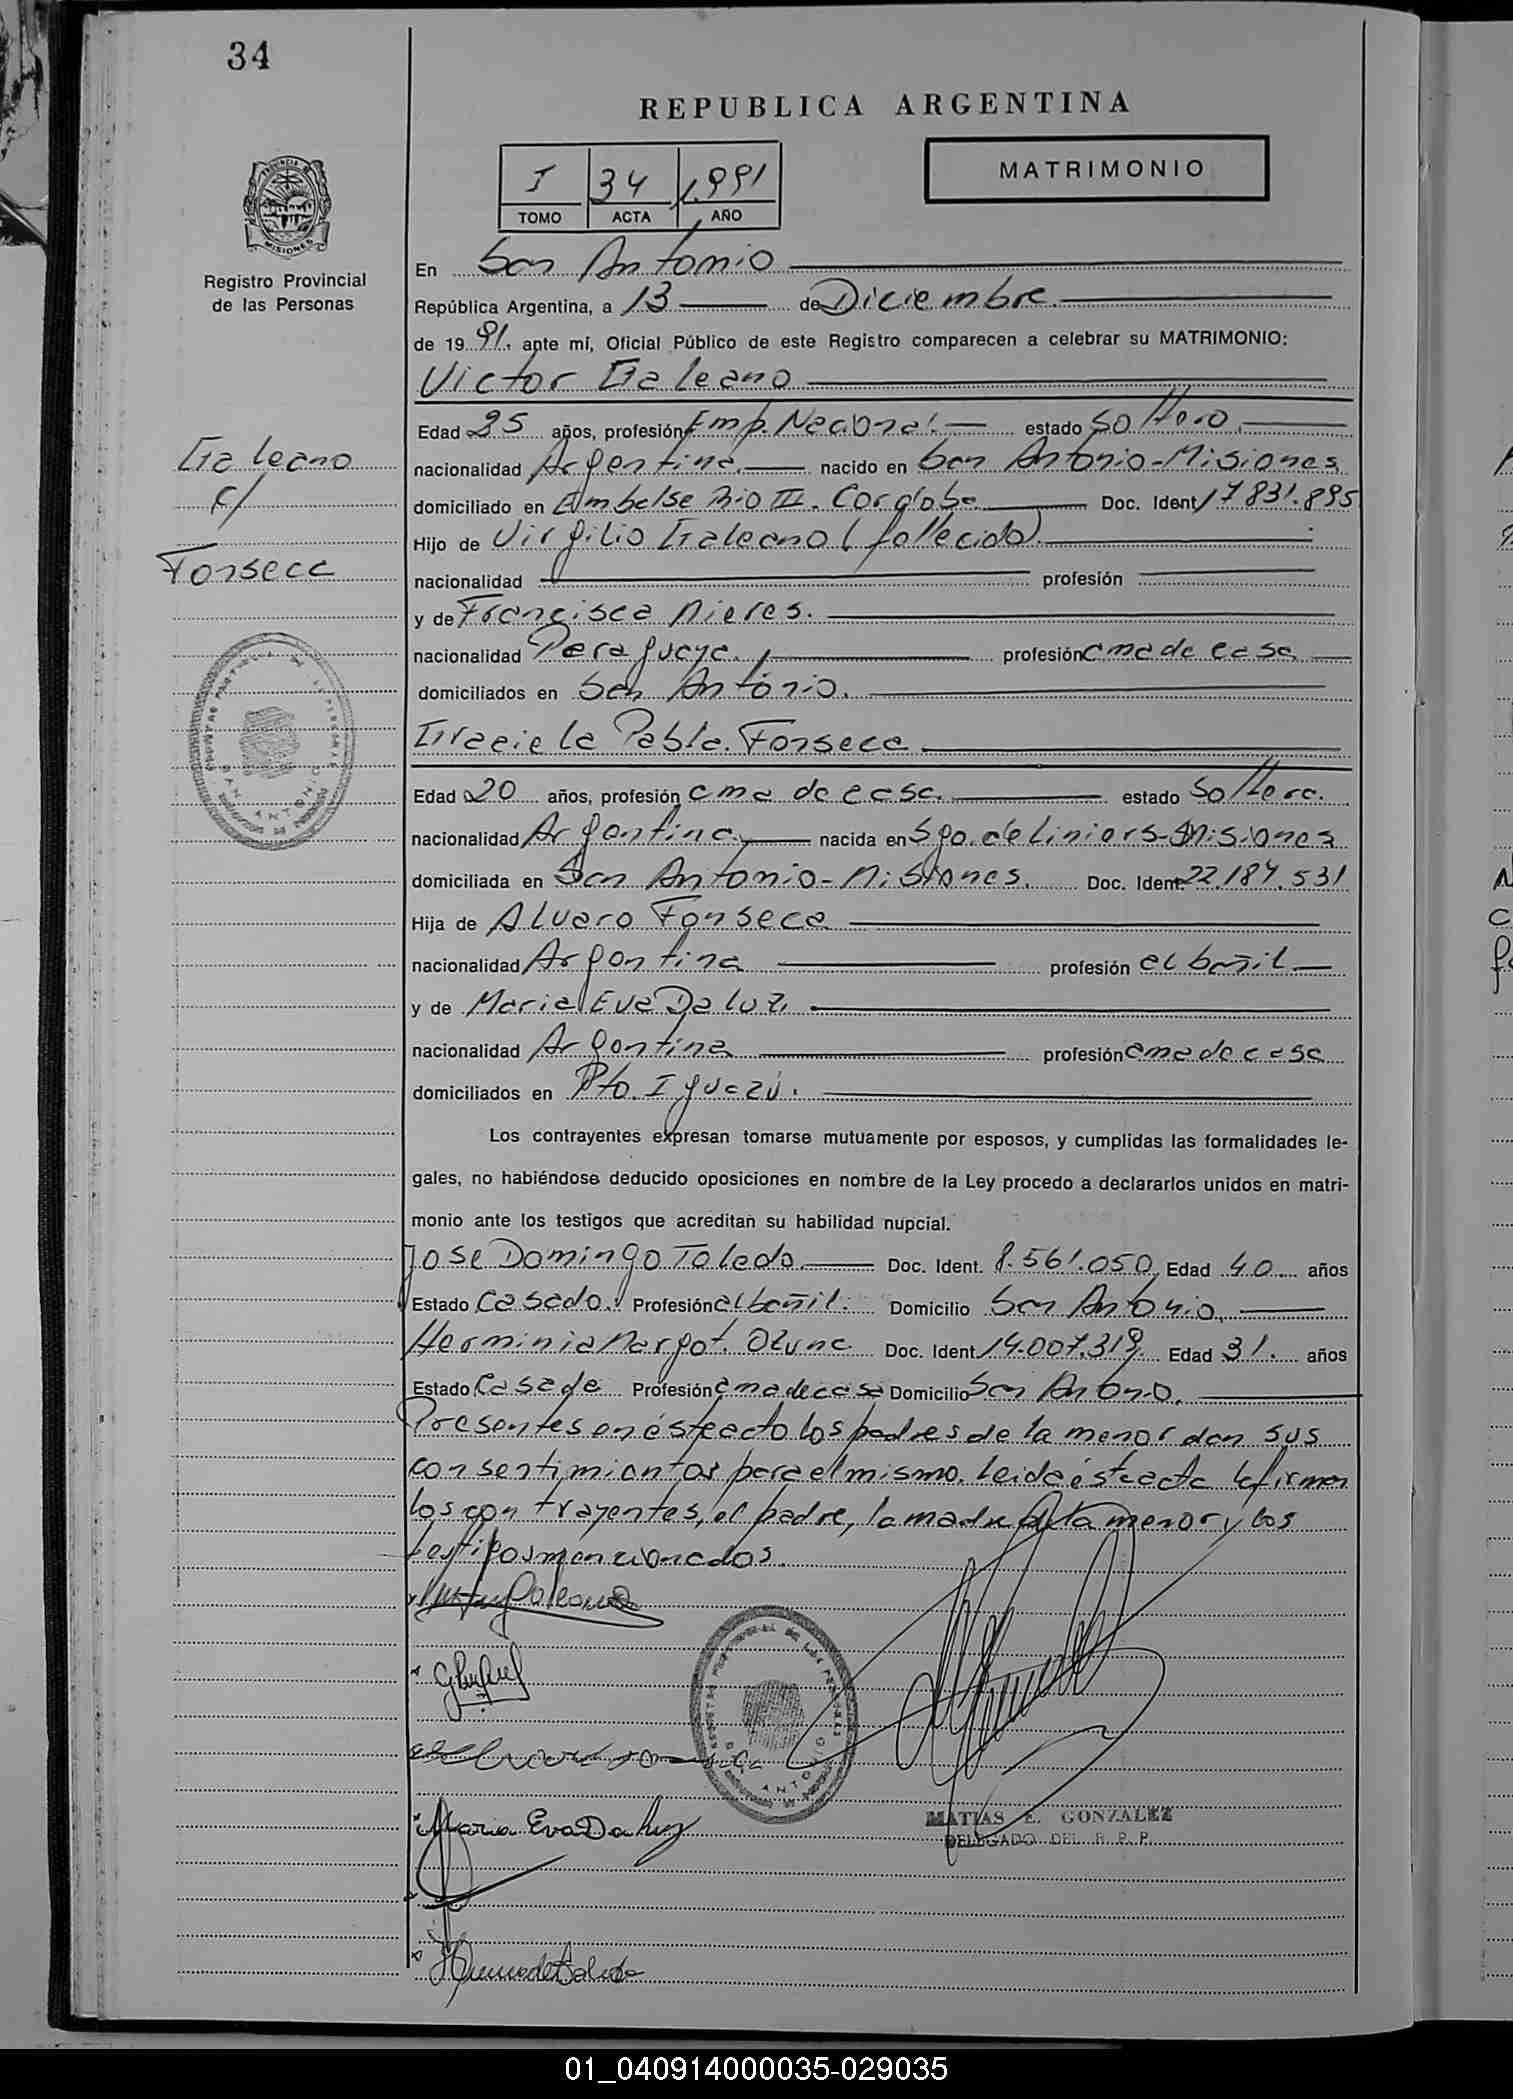 34
REPUBLICA ARGENTINA
I 34 1.991
TOMO ACTA AÑO
MATRIMONIO
PROVINCIA DE
MISIONES
Registro Provincial
de las Personas
En San Antonio
República Argentina, a 13 de Diciembre.
de 19 91. ante mí, Oficial Público de este Registro comparecen a celebrar su MATRIMONIO:
Victor Galeano
Edad 25 años, profesión Emp. Nacional. estado Soltero.
nacionalidad Argentina. nacido en San Antonio-Misiones
domiciliado en Embalse Rio III. Cordoba. Doc. Ident 17831.895
Hijo de Virgilio Galeano (fallecido).
nacionalidad profesión
y de Francisca Nieres.
nacionalidad Paraguaya. profesión ama de casa
domiciliados en San Antonio.
Galeano
c/
Fonseca
Graciela Pabla. Fonseca
Edad 20 años, profesión ama de casa. estado Soltera.
nacionalidad Argentina. nacida en Sgo. de Liniers-Misiones
domiciliada en San Antonio-Misiones. Doc. Ident. 22.184.531
Hija de Alvaro Fonseca
nacionalidad Argentina profesión albañil
y de Maria Eva Da luz.
nacionalidad Argentina profesión ama de casa
domiciliados en Pto. Iguazú.
Los contrayentes expresan tomarse mutuamente por esposos, y cumplidas las formalidades le-
gales, no habiéndose deducido oposiciones en nombre de la Ley procedo a declararlos unidos en matri-
monio ante los testigos que acreditan su habilidad nupcial.
Jose Domingo Toledo. Doc. Ident. 8.561.050 Edad 40 años
Estado Casado. Profesión albañil. Domicilio San Antonio.
Herminia Margot. Oluna Doc. Ident 14.007.319 Edad 31. años
Estado Casada Profesión ama de casa Domicilio San Antonio.
Presentes en éste acto los padres de la menor dan sus
consentimiantos para el mismo. Leida ésta acta la firman
los contrayentes, el padre, la madre de la menor y los
testigos mencionados.
Maria Eva Da luz
MATIAS E. GONZALEZ
DELEGADO DEL R. P. P.
SAN ANTONIO
01_040914000035-029035